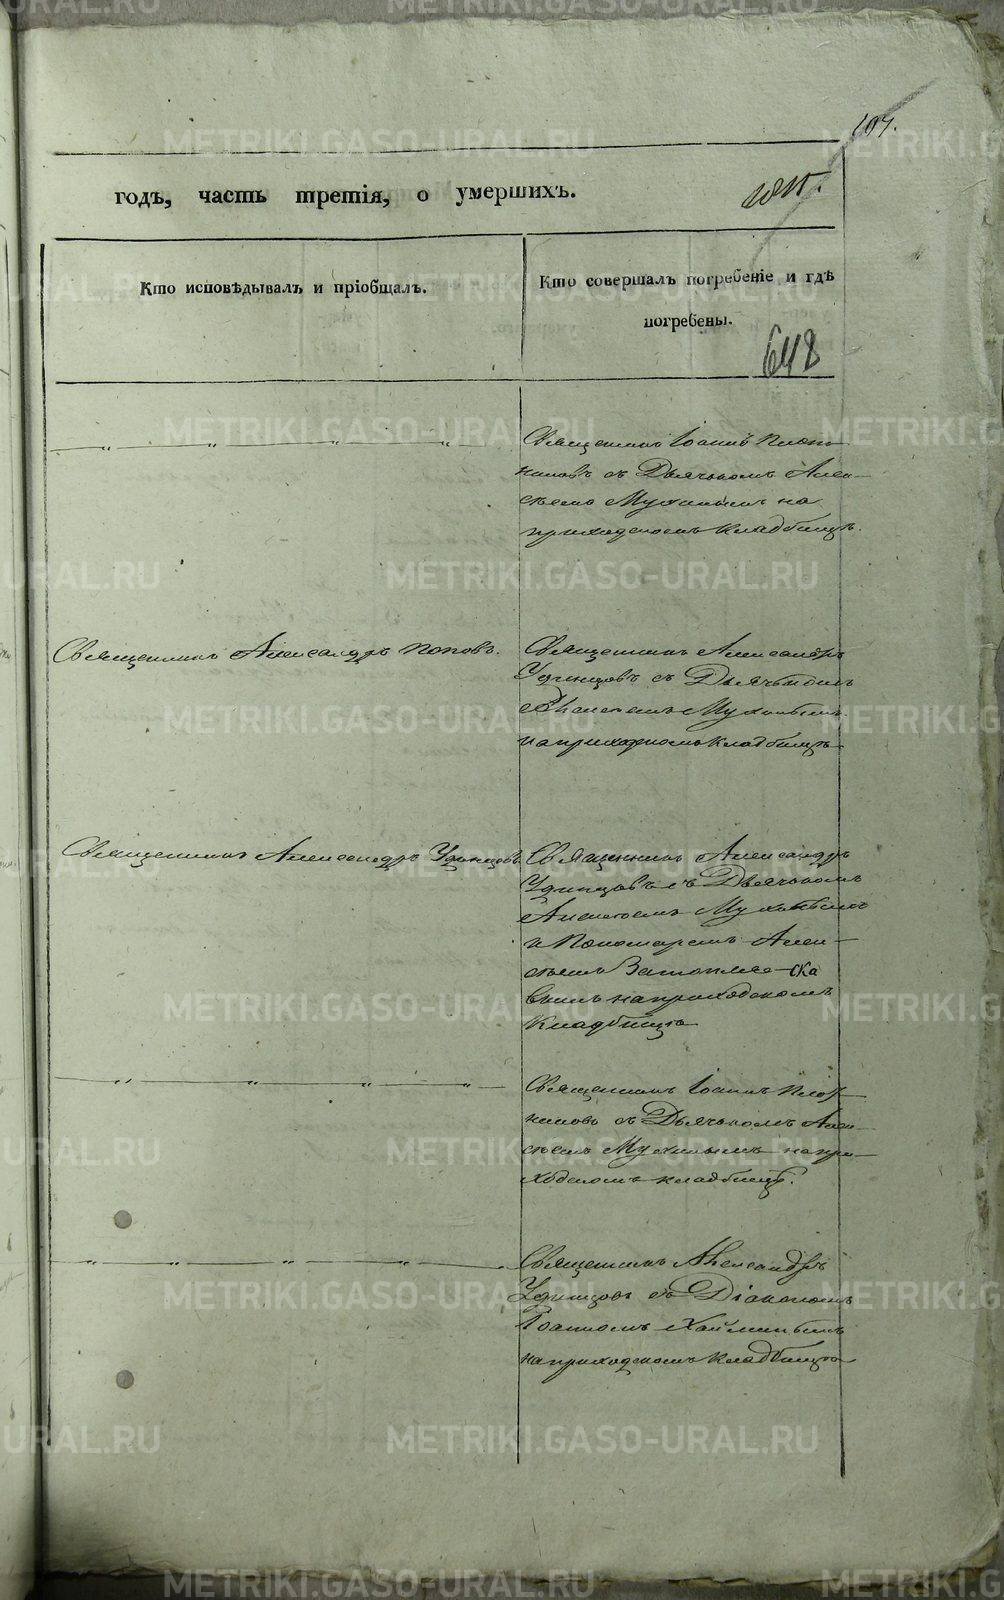 METRIKI.GASO-URAL.RU
107.
годъ, часть третія, о умершихъ.
Кто исповѣдывалъ и пріобщалъ.
Кто совершалъ погребеніе и гдѣ
погребены.
648
Священникъ Іоаннъ Плот-
никовъ съ Дьячькомъ Алек-
сѣемъ Мухинымъ на
приходскомъ кладбищѣ.
Священникъ Александръ Поповъ.
Священникъ Александръ
Удинцовъ съ Дьячькомъ
Алексѣемъ Мухинымъ
на приходскомъ кладбищѣ
Священникъ Александръ Удинцовъ.
Священникъ Александръ
Удинцовъ съ Дьячькомъ
Алексѣемъ Мухинымъ
и Пономаремъ Алек-
сѣемъ
вымъ на приходскомъ
кладбищѣ
Священникъ Іоаннъ Плот-
никовъ съ Дьячькомъ Алек-
сѣемъ Мухинымъ на при-
ходскомъ кладбищѣ.
Священникъ Александръ
Удинцовъ съ Діакономъ
Іоанномъ
на приходскомъ кладбищѣ